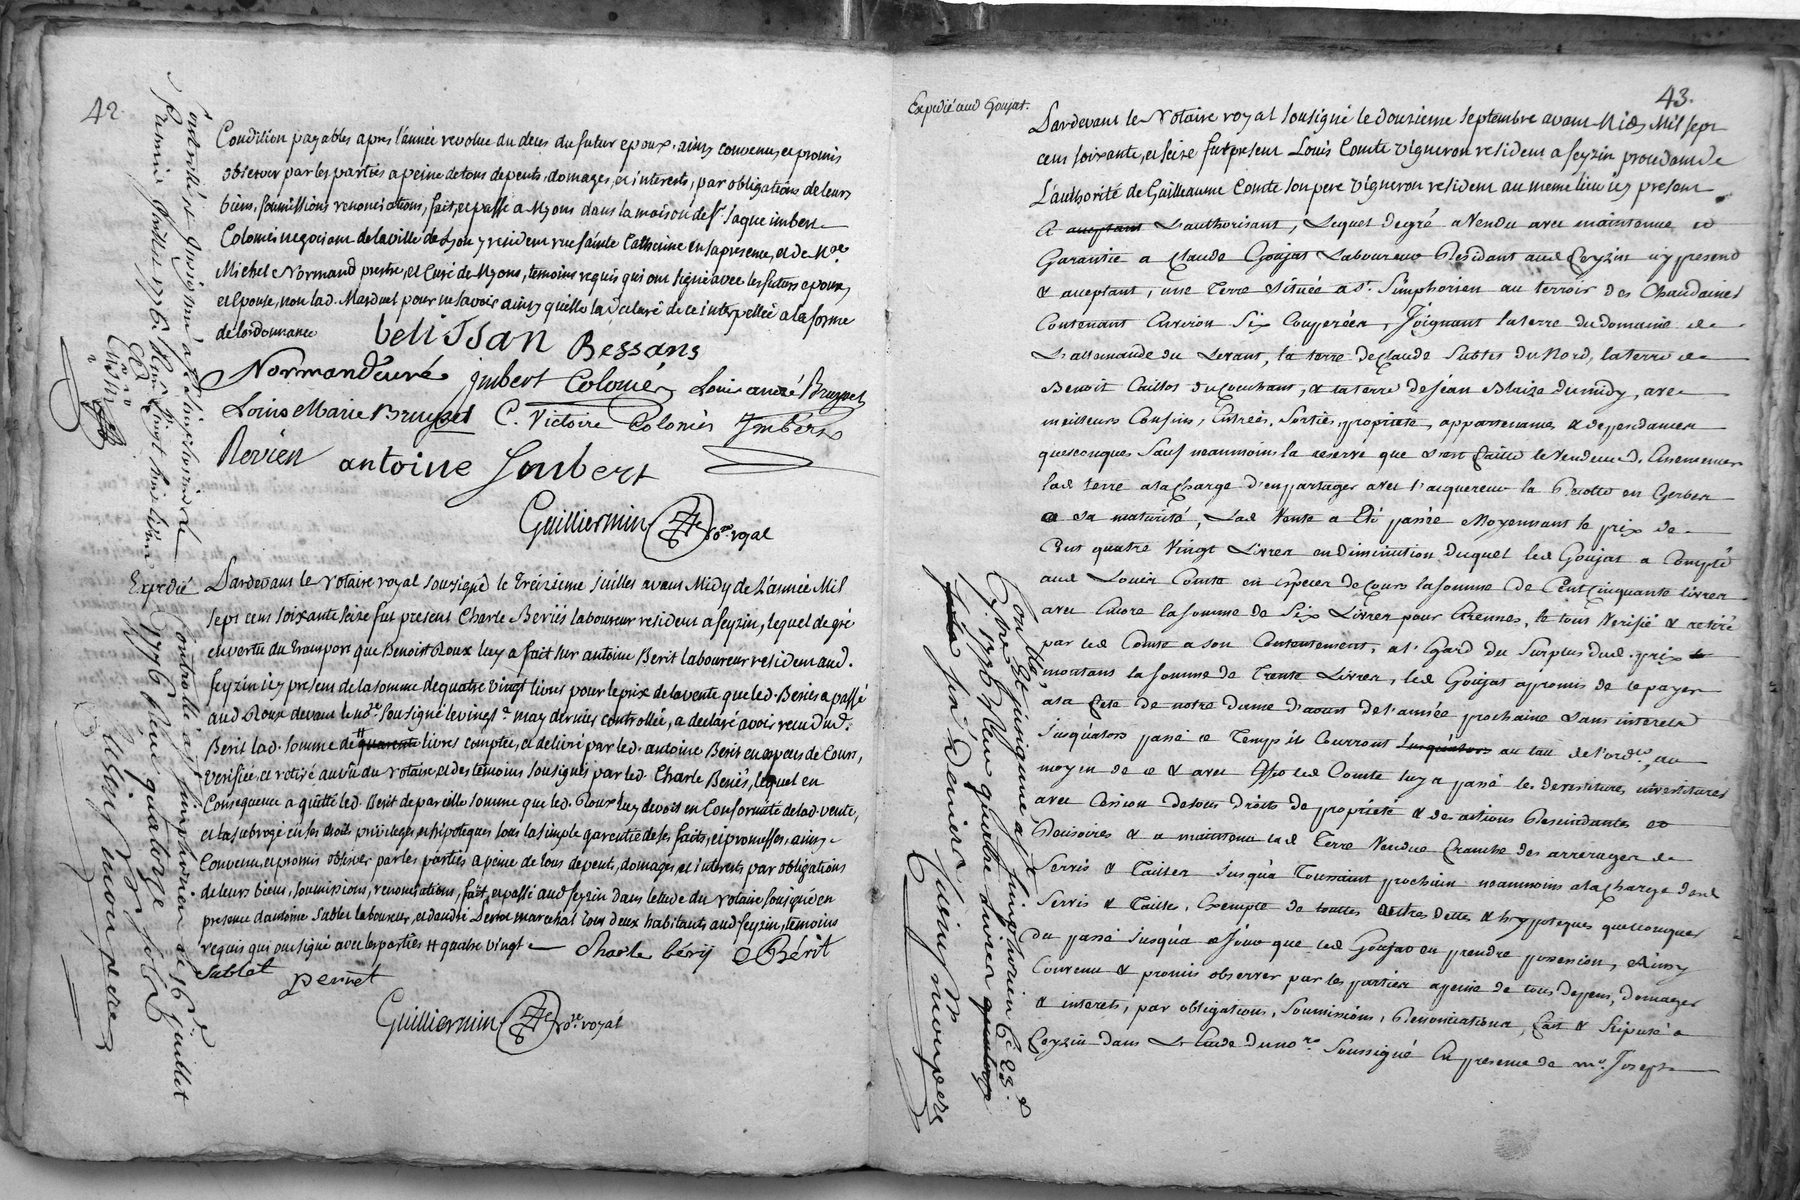 42.
Condition payables apres l'année revolue du deces du futur epoux, ainsy convenu, et promis
observer par les parties a peine de tous depents, domages, et interests, par obligations de leurs
biens, soumissions renonciations, fait, et passé a Myons dans la maison de Sr. Jaque imbert
Colomés negociant de la ville de Lyon y resident rue Sainte Catherine en sa presence, et de Mre.
Michel Normand prestre, et Curé de Myons, temoins requis qui ont signé avec les futurs epoux,
et Epouse, non lad. Marduel pour ne savoir ainsy quelle la declaré de ce interpellée a la forme
de lordonnance
belissan Bessans
Normand curé imbert Colomés Louis andré Bruyset
Louis Marie Bruyset C. Victoire Colomés Imbert
Revien antoine Joubert
Guilliermin Nore. royal
Expedié
Pardevant le Notaire royal sousigné le treizieme juillet avant Midy de L'année Mil
sept cent soixante seize fut present Charle Beriés laboureur resident a feyzin, lequel de gré
en vertu du transport que Benoist Roux luy a fait sur antoine Berit laboureur resident aud.
feyzin icy present de la somme de quatre vingt livres pour le prix de la vente que led. Beriés a passé
aud Roux devant le nore. sousigné le vingt d. may dernier controllée, a declaré avoir recu dud.
Berit lad. somme de # quarante livres comptée, et delivré par led. antoine Berit en especes de Cours,
verifiée, et retiré au vû du Notaire, et des temoins sousignés par led. Charle Beriés, lequel en
Consequence a quitté led. Berit de pareille somme que led. Roux luy devoit en Conformité de lad vente,
et la subrogé en ses droits privileges et hipoteques sous la simple garentie de ses faits, et promesses, ainsy
Convenu, et promis observer par les parties a peine de tous depents, domages, et interests par obligations
de leurs biens, soumissions, renonciations, fait, et passé aud feyzin dans letude du Notaire sousigné en
presence d'antoine Sablet laboureur, et d'andré Pernet marechal tous deux habitants aud feyzin, temoins
requis qui ont signé avec les parties # quatre vingt
Charle bériy Bérit
Sablet pernet
Guilliermin Nore. royal
Controllé a st simphorien le 16 juillet
1776 Reçu quatorze sols
Guerin mouperé
43.
Expedié aud Goujat.
Pardevant le Notaire royal sousigné le douzieme septembre avant Midy Mil sept
cent soixante, et seize fut present Louis Comte vigneron resident a feyzin procedant de
L'authorité de Guilleaume Comte son pere vigneron resident au meme lieu icy present
Et acceptant L'authorisant, Lequel de gré a vendu avec maintenue et
Garantie a Claude Goujat Laboureur Residant aud feyzin icy present
& acceptant, une Terre située a St. Simphorien au terroir des Chaudaines
Contenant Environ Six Couperées, Joignant la terre du domaine de
L'allemande du Levant, la terre de Claude Sables du Nord, la terre de
Benoit Caillot du Couchant, & la terre de Jean Blaize du midy, avec
meilleurs Confins, Entrées, Sorties, propriété, appartenances & dependances
quesconques Sauf neanmoins la reserve que s'est faitte le vendeur d'Ensemencer
lad terre a la charge d'en partager avec l'acquereur la Recolte en Gerbes
a sa maturité, Lad Vente a Eté passée Moyennant le prix de
Cent quatre Vingt Livres en diminution duquel led Goujat a Compté
aud Louis Comte en especes de Cours la somme de Cent Cinquante livres
avec Encore la somme de Six Livres pour Etrennes, le tout Verifié & retiré
par led Comte a son Contentement, a l'Egard du Surplus dud. prix
montant la somme de Trente Livres, led Goujat a promis de le payer
a la fete de notre dame d'aoust de l'année prochaine sans interets
jusqu'alors passé ce Temps ils Courront jusqu'alors au taux de l'ordce., au
moyen de ce & avec Effet led Comte luy a passé les devestitures investitures
avec Cession de tous Droits de propriété & de actions Rescindantes et
Recisoires & a maintenu lad Terre Vendue franche des arrerages de
Servis & Tailles jusqu'a Toussaint prochain neanmoins a la charge desd
Servis & Tailles, Exempte de touttes autres dettes & hypoteques quelconques
du passé jusqu'a ce Jour que led Goujat en prendre possession, Ainsy
Convenu & promis observer par les parties a peine de tous depens, domages
& interets, par obligations, soumissions, Renonciations, fait & stipulé a
feyzin dans L'Etude du nore. Soussigné En presence de me. Joseph
Guerin mouperé